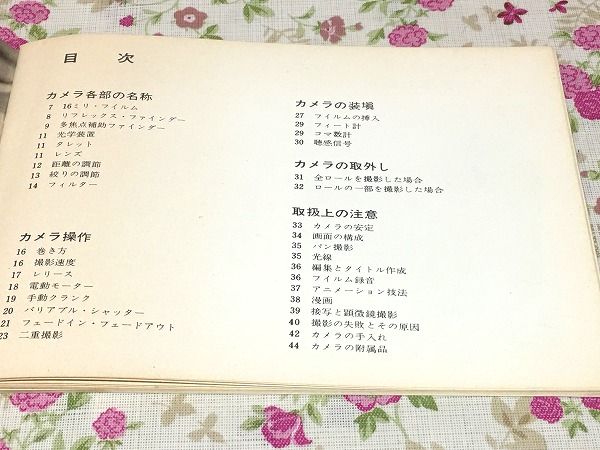 目次
カメラ各部の名称
7 16ミリ・フイルム
8 リフレックス・ファインダー
9 多焦点補助ファインダー
11 光学装置
11 タレット
11 レンズ
12 距離の調節
13 絞りの調節
14 フィルター
カメラ操作
16 巻き方
16 撮影速度
17 レリース
18 電動モーター
19 手動クランク
20 バリアブル・シャッター
21 フェードイン・フェードアウト
23 二重撮影
カメラの装塡
27 フイルムの挿入
29 フィート計
29 コマ数計
30 聴感信号
カメラの取外し
31 全ロールを撮影した場合
32 ロールの一部を撮影した場合
取扱上の注意
33 カメラの安定
34 画面の構成
35 パン撮影
35 光線
36 編集とタイトル作成
36 フイルム録音
37 アニメーション技法
38 漫画
39 接写と顕微鏡撮影
40 撮影の失敗とその原因
42 カメラの手入れ
44 カメラの附属品